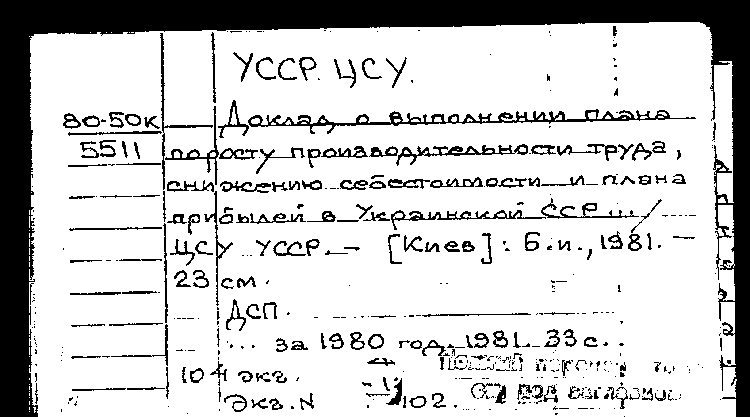 УССР. ЦСУ.
80-50к Доклад о выполнении плана
5511 по росту производительности труда,
снижению себестоимости и плана
прибылей в Украинской ССР... /
ЦСУ УССР. — [Киев] : Б.и., 1981. —
23 см.
ДСП.
... за 1980 год. 1981. 33 с. .
104 экз. Полный перечен
Экз. N 102. под заглавием